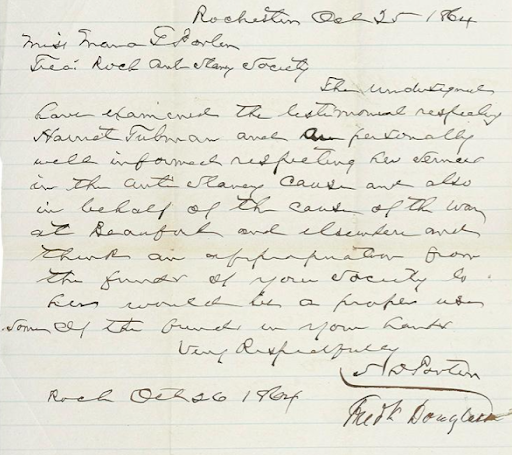 Rochester Oct 25 1864
Miss Maria G Porter
Trea: Roch Anti Slavery Society
The undersigned
have examined the testimonial respecting
Harriet Tubman and are personally
well informed respecting her services
in the Anti Slavery Cause and also
in behalf of the cause of the war
at Beaufort and elsewhere and
think an appropriation from
the funds of your Society to
her would be a proper use
some of the funds in your hands
Very Respectfully
Porter
Roch Oct 26 1864
Fredk Douglass